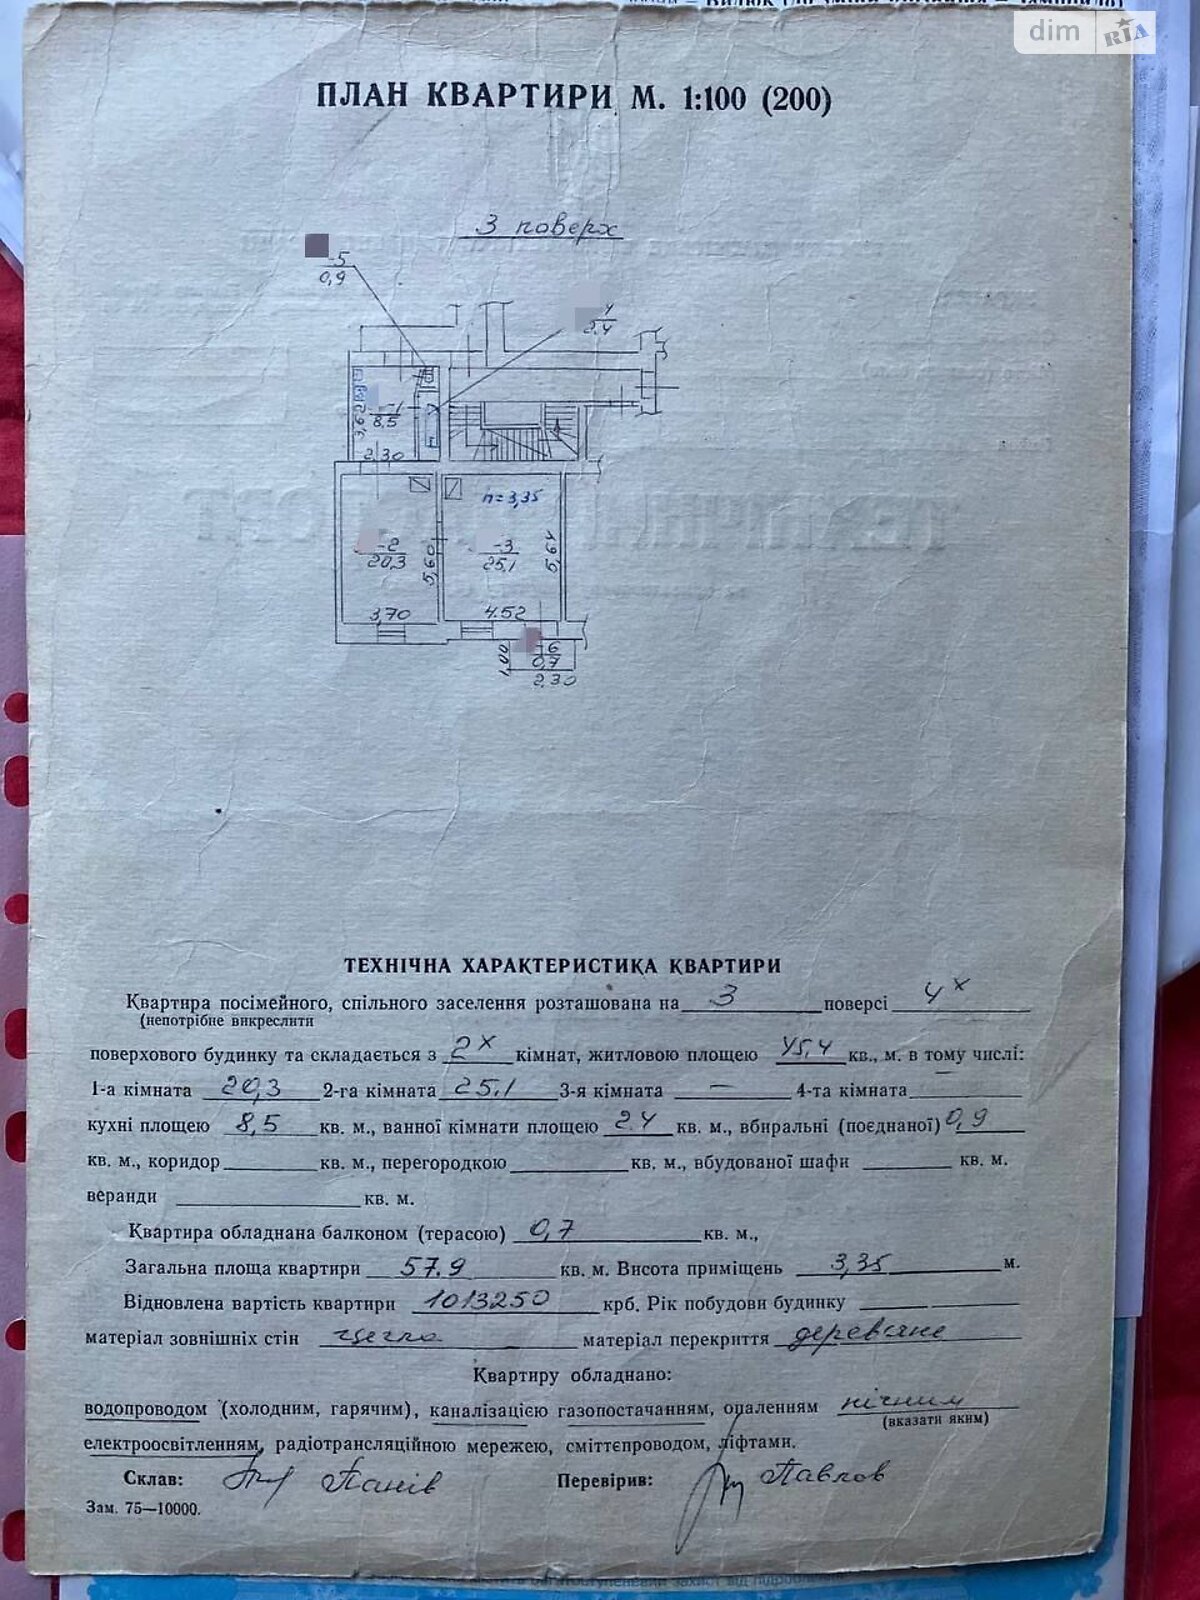 dim RIA
ПЛАН КВАРТИРИ М. 1:100 (200)
3 поверх
-5
0,9
4
2.4
-1
8,5
3,62
2.30
h=3,35
-2
20,3
5,60
-3
25,1
5,64
3,70
4.52
-6
0,7
1,00
2,30
ТЕХНІЧНА ХАРАКТЕРИСТИКА КВАРТИРИ
Квартира посімейного, спільного заселення розташована на 3 поверсі 4х
(непотрібне викреслити
поверхового будинку та складається з 2х кімнат, житловою площею 45,4 кв., м. в тому числі:
1-а кімната 20,3 2-га кімната 25.1 3-я кімната — 4-та кімната —
кухні площею 8,5 кв. м., ванної кімнати площею 2.4 кв. м., вбиральні (поєднаної) 0,9
кв. м., коридор кв. м., перегородкою кв, м., вбудованої шафи кв. м.
веранди кв. м.
Квартира обладнана балконом (терасою) 0,7 кв. м.,
Загальна площа квартири 57.9 кв. м. Висота приміщень 3,35 м.
Відновлена вартість квартири 1013250 крб. Рік побудови будинку
матеріал зовнішніх стін цегла матеріал перекриття дерев'яне
Квартиру обладнано:
водопроводом (холодним, гарячим), каналізацією газопостачанням, опаленням пічним
(вказати яким)
електроосвітленням, радіотрансляційною мережею, сміттєпроводом, ліфтами.
Склав: Панів Перевірив: Павлов
Зам. 75—10000.